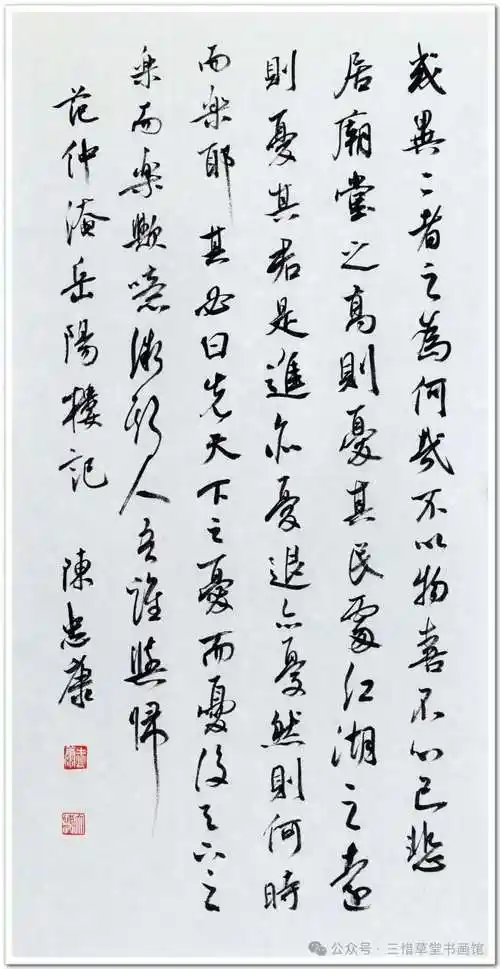 或異二者之為何哉不以物喜不以己悲
居廟堂之高則憂其民處江湖之遠
則憂其君是進亦憂退亦憂然則何時
而樂耶其必曰先天下之憂而憂後天下之
樂而樂歟噫微斯人吾誰與歸
范仲淹岳陽樓記 陳忠康
公众号·三惜草堂书画馆